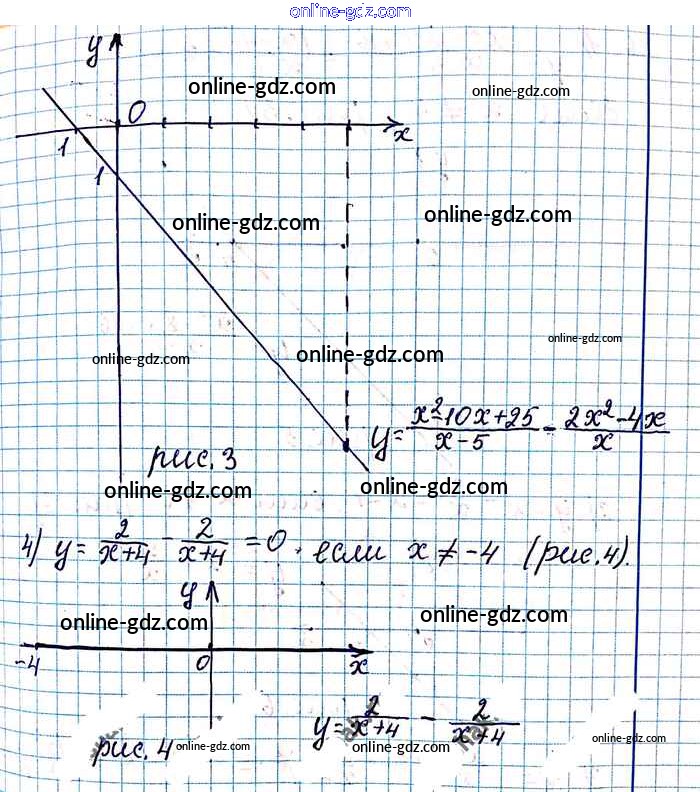 online-gdz.com
y
online-gdz.com
online-gdz.com
0
x
1
1
online-gdz.com
online-gdz.com
online-gdz.com
online-gdz.com
online-gdz.com
y = (x² - 10x + 25)/(x - 5) - (2x² - 4x)/x
рис. 3
online-gdz.com
online-gdz.com
4) y = 2/(x+4) - 2/(x+4) = 0, если x ≠ -4 (рис. 4).
y
online-gdz.com
online-gdz.com
-4
0
x
y = 2/(x+4) - 2/(x+4)
рис. 4
online-gdz.com
online-gdz.com
online-gdz.com